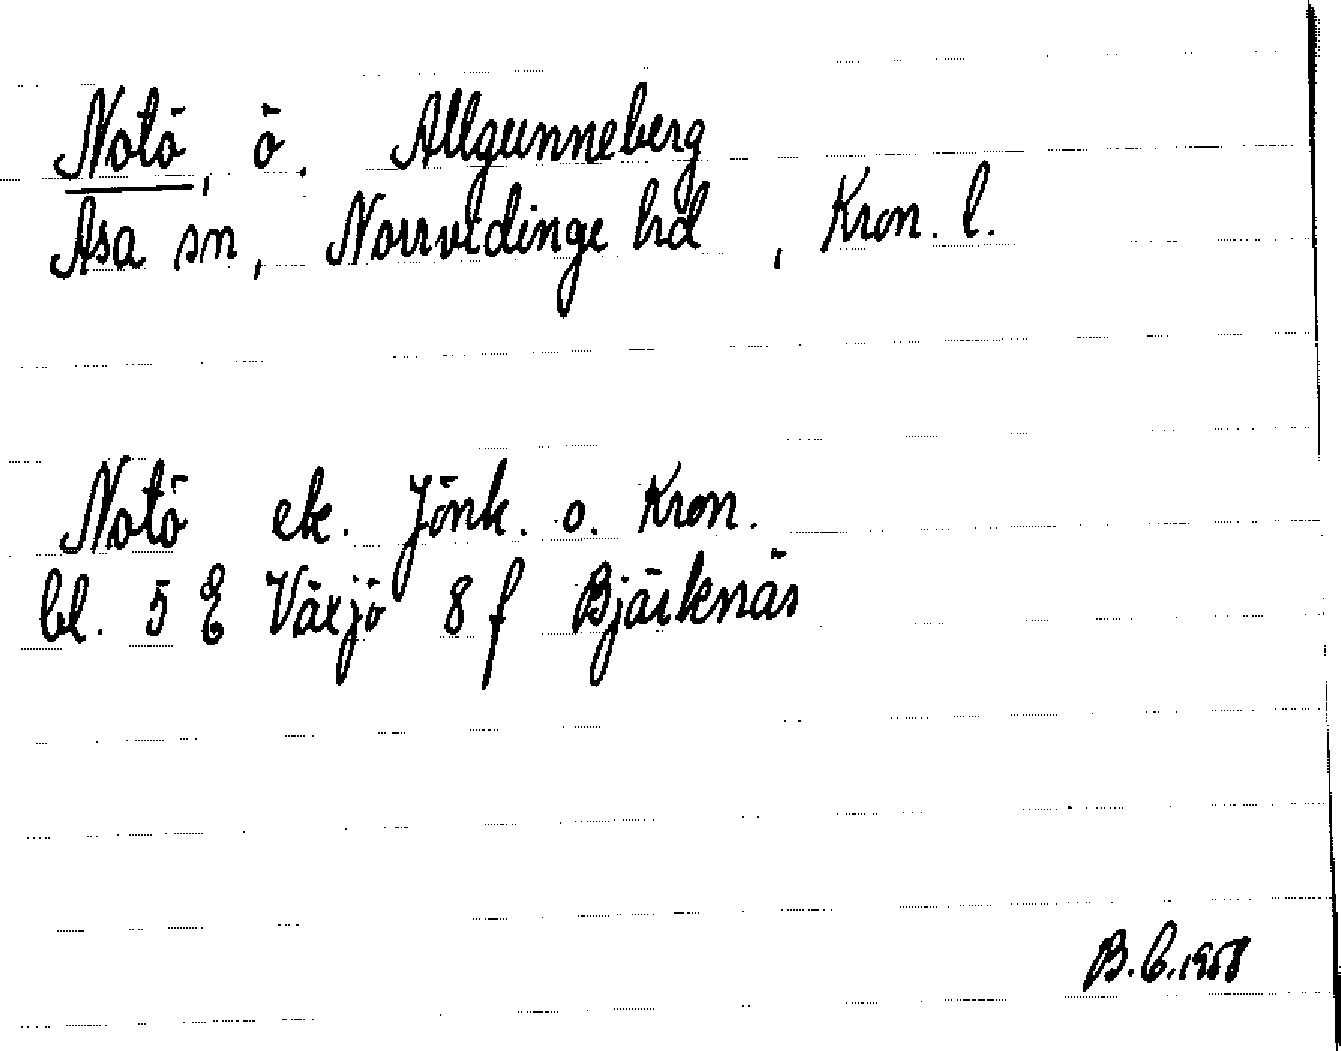 Notö, ö. Allgunneberg
Asa sn, Norrvidinge hd, Kron. l.
Notö ek. Jönk. o. Kron.
bl. 5 E Växjö 8 f Bjärknäs
B. C. 1958